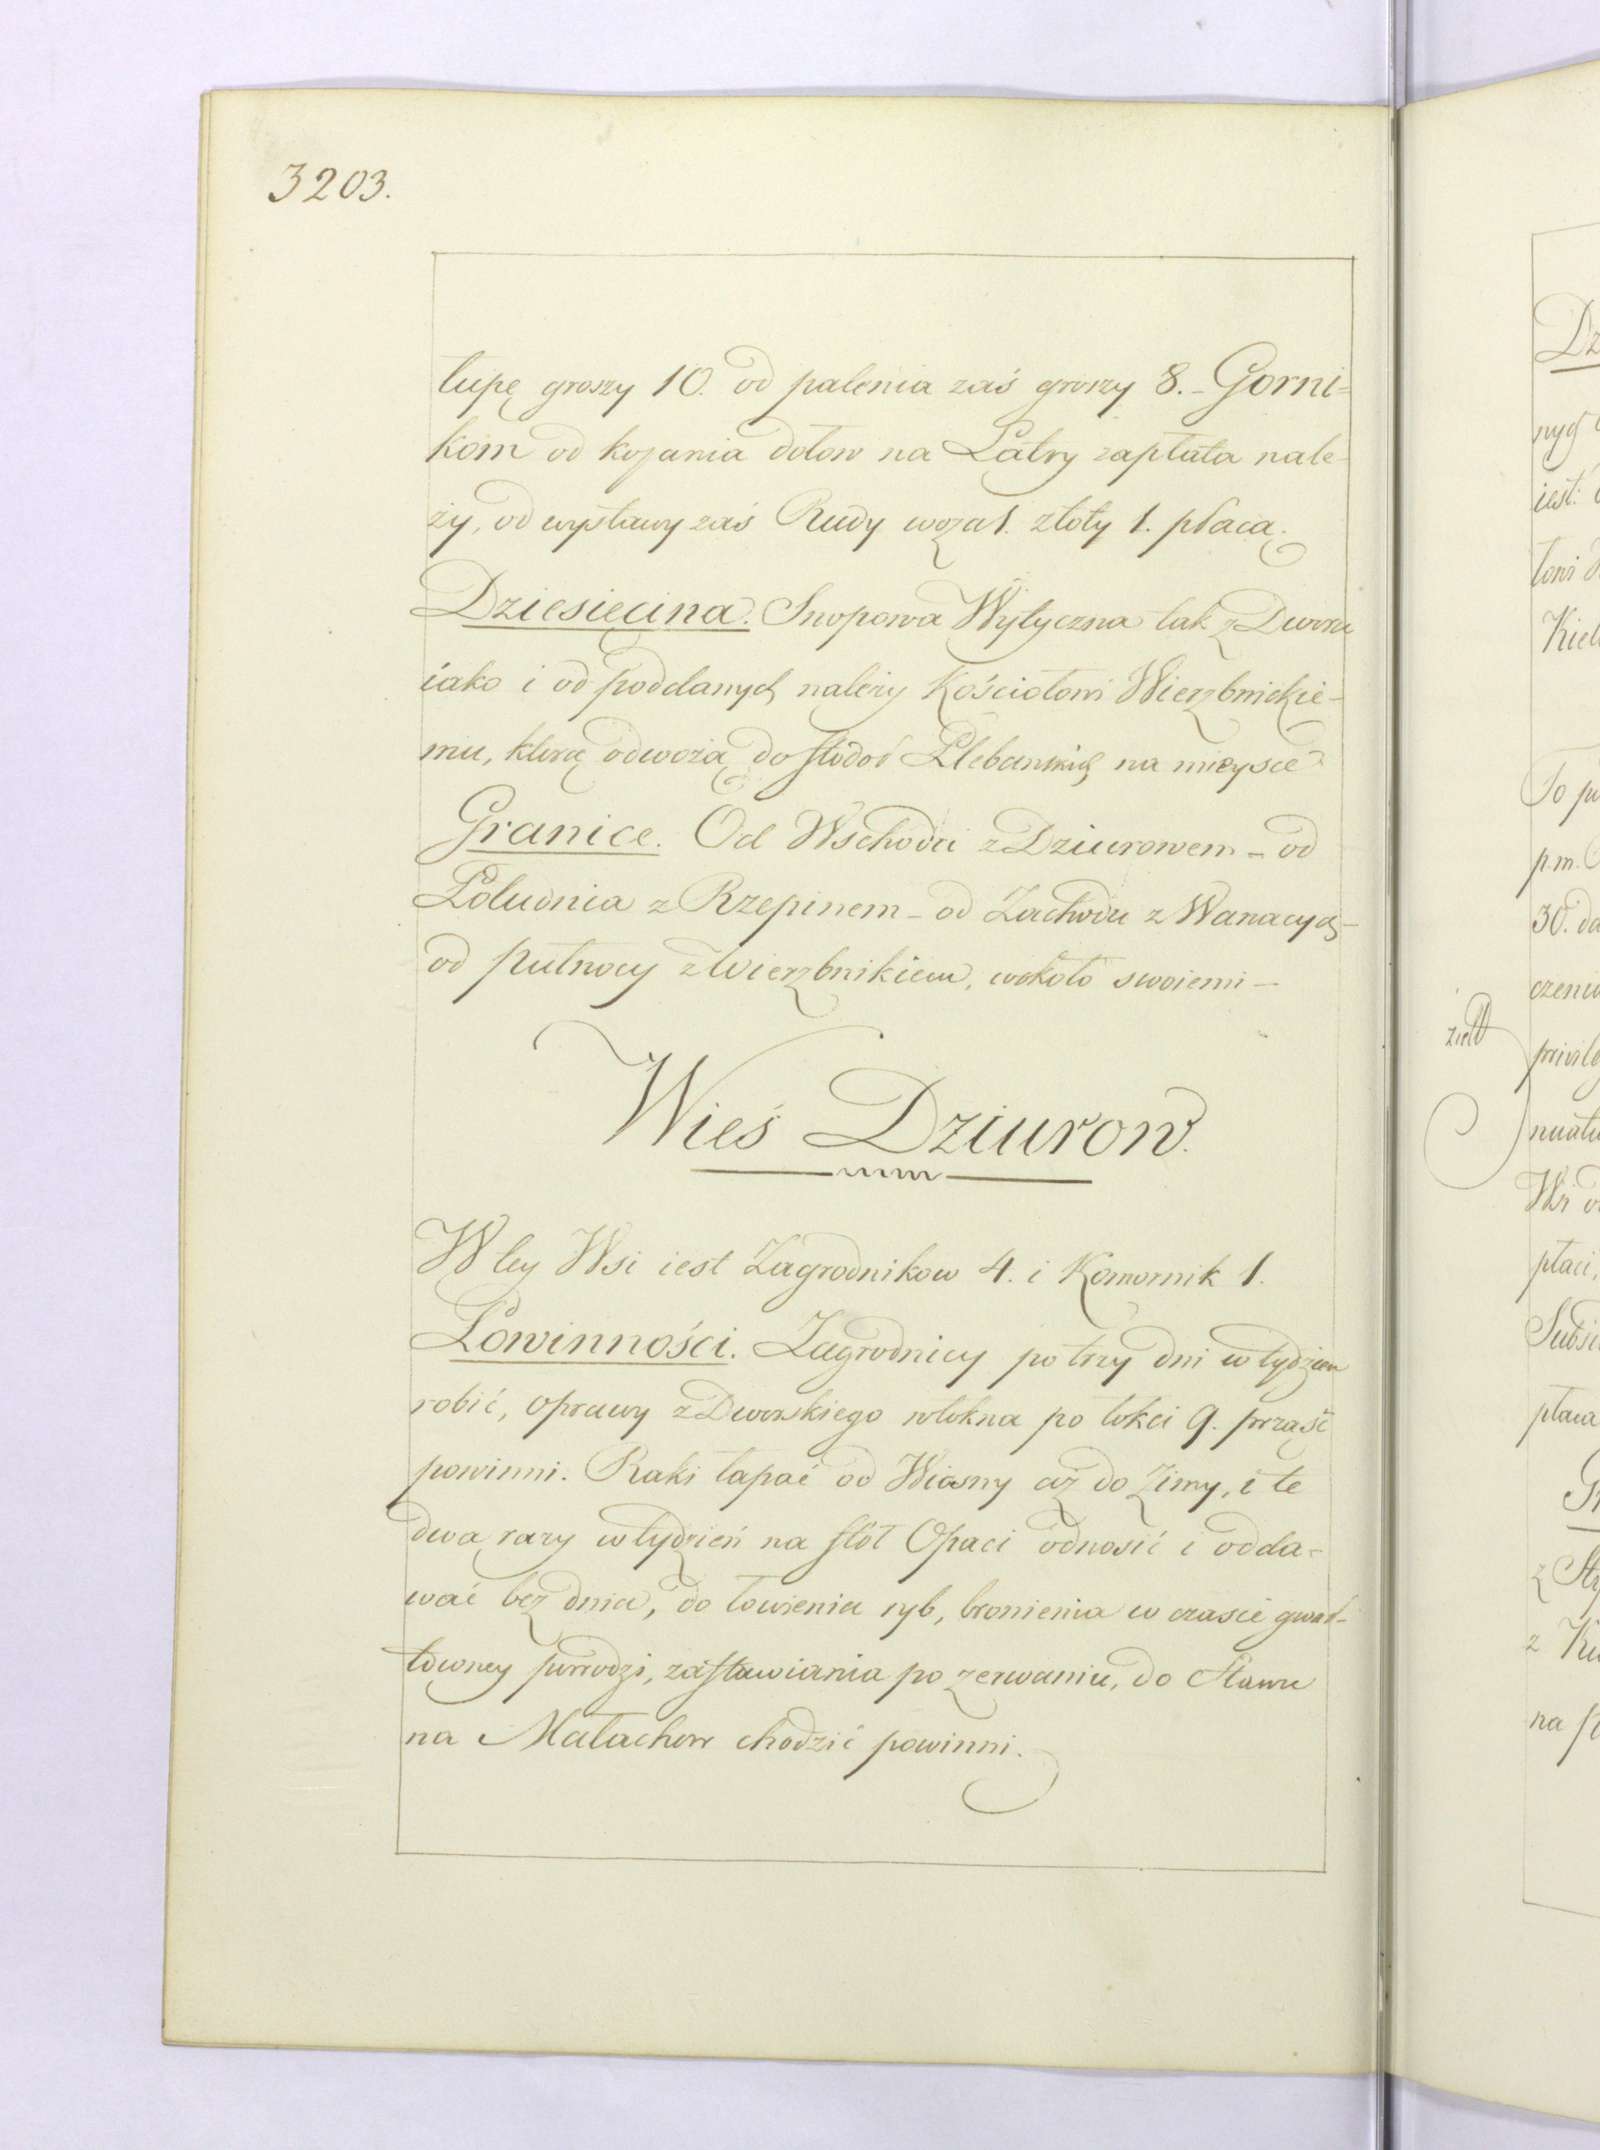 3203.
łupę groszy 10. od palenia zaś groszy 8. – Gorni=
kom od kopania dołow na Latry zapłata nale-
ży, od wystawy zaś Rudy woza 1. złoty 1. płacą.
Dziesięcina. Snopowa Wytyczna tak z Dworu
iako i od poddanych należy Kościołowi Wierzbnickie-
mu, ktorą odwożą do stodoł Plebańskich na mieysce
Granice. Od Wschodu z Dziurowem – od
Południa z Rzepinem – od Zachodu z Wanacyą –
od Pułnocy z Wierzbnikiem, wokoło swoiemi –
Wieś Dziurow.
W tey Wsi iest Zagrodnikow 4. i Komornik 1.
Powinności. Zagrodnicy po trzy dni w tydzien
robić, oprawy z Dworskiego włokna po łokci 9. prząść
powinni. Raki łapać od Wiosny aż do Zimy, i te
dwa razy w tydzień na stoł Opaci odnosić i odda-
wać bez dnia, do łowienia ryb, bronienia w czasie gwał-
towney powodzi, zastawiania po zerwaniu, do Stawu
na Małachow chodzić powinni.
Dz
iest:
Kiel
To pu
p. m.
30. da
czenu
ziełł
privile
płaci,
płaca
Gr
z Ku